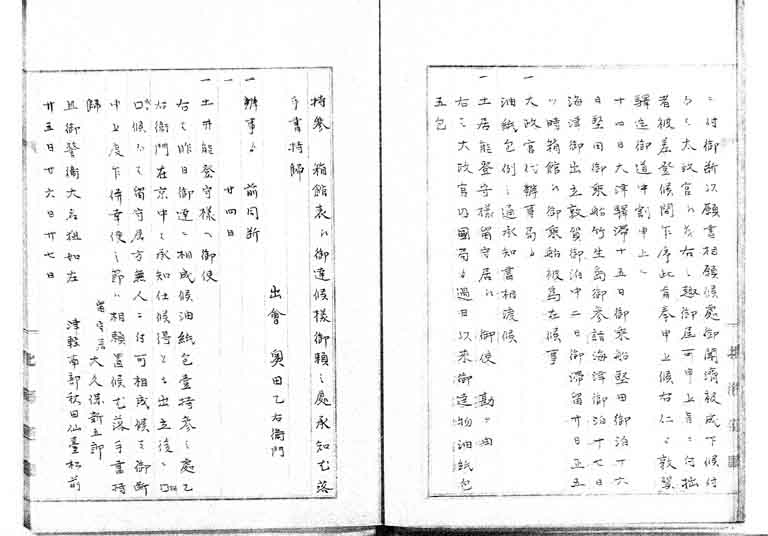 ニ付御断以願書相願候處御聞済被成下候付
而之大政官ゟ左右之趣御届可申上旨ニ付拙
者被差登候間乍序此旨奉申上候右仁ゟ敦賀
驛迄御道中割申上ル
十四日大津驛滞十五日御乗船堅田御泊十六
日堅田御乗船竹生島御参詣海津御泊十七日
海津御出立敦賀御泊中二日御滞留廿日正五
ツ時箱館江御乗船被為在候事
一大政官代辨事局ゟ
油紙包例之通承知書相渡候
一土居能登守様留守居江 御使 勘ケ由
右之大政官内國局ゟ過日以来御達物油紙包
五包
持参 箱館表江御達候様御頼之處承知也落
手書持帰
出會 奥田乙右衛門
一辨事ゟ 前同断
一 廿四日
一土井能登守様ヘ御使
右之昨日御達ニ相成候油紙包壹持参之處乙
右衛門在京中之承知仕候得とも出立後ニ
候而之留守居方無人ニ付可相成候ハ御断
申上度乍併幸便之節江相願置候也落手書持
帰 留守居 大久保新五郎
且御警衛大名祖如左 津軽南部秋田仙臺松前
廿五日廿六日廿七日